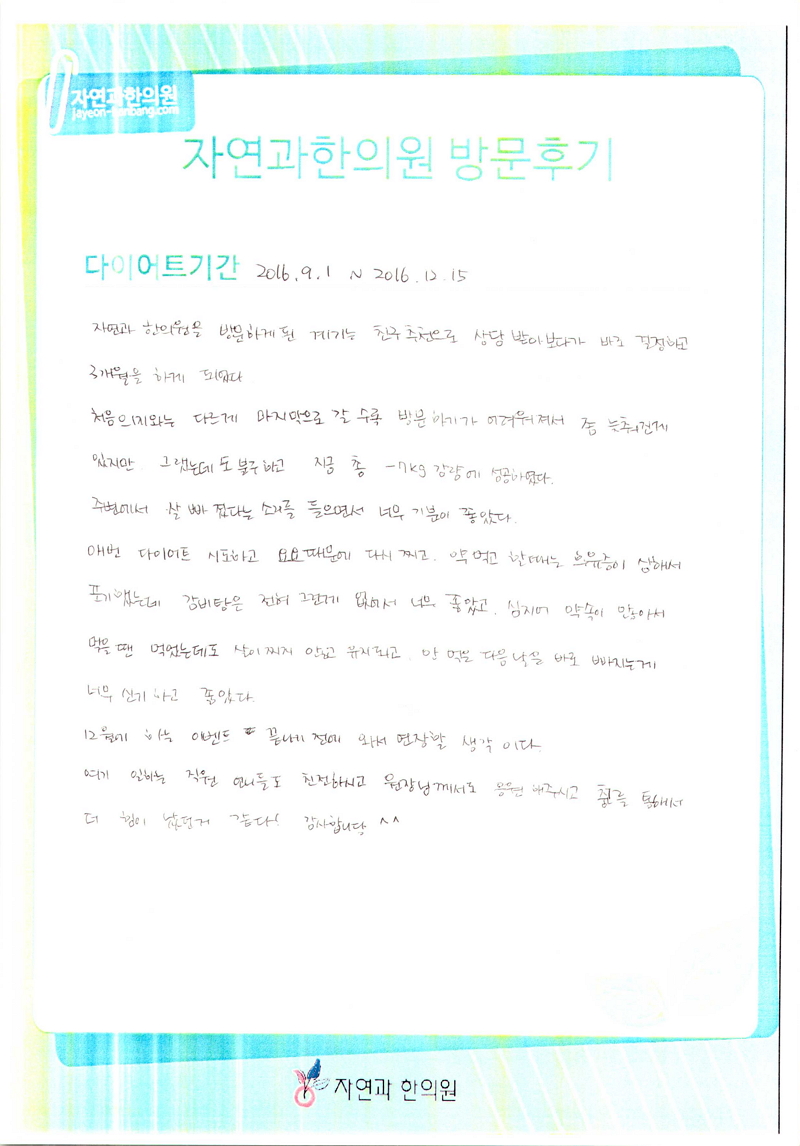 자연과한의원
jayeon-hanbang.com
자연과한의원 방문후기
다이어트기간 2016.9.1 ~ 2016.12.15
자연과 한의원을 방문하게된 계기는 친구추천으로 상담 받아보다가 바로 결정하고
3개월을 하게 되었다
처음의지와는 다르게 마지막으로 갈 수록 방문하기가 어려워져서 좀 늦춰진게
있지만 그랬는데도 불구하고 지금 총 -7kg 감량에 성공하였다.
주변에서 살 빠졌다는 소리를 들으면서 너무 기분이 좋았다.
매번 다이어트 시도하고 요요때문에 다시 찌고. 약먹고 할때에는 후유증이 심해서
포기했는데 감비탕은 전혀 그런게 없어서 너무 좋았고. 심지어 약속이 많아서
먹을 땐 먹었는데도 살이 찌지 않고 유지되고. 안 먹은 다음날은 바로 빠지는게
너무 신기하고 좋았다.
12월에 하는 이벤트 끝나기 전에 와서 연장할 생각 이다.
여기 일하는 직원 언니들도 친절하시고 원장님께서도 응원 해주시고 통해서
더 힘이 났던거 같다! 감사합니다 ^^
자연과 한의원